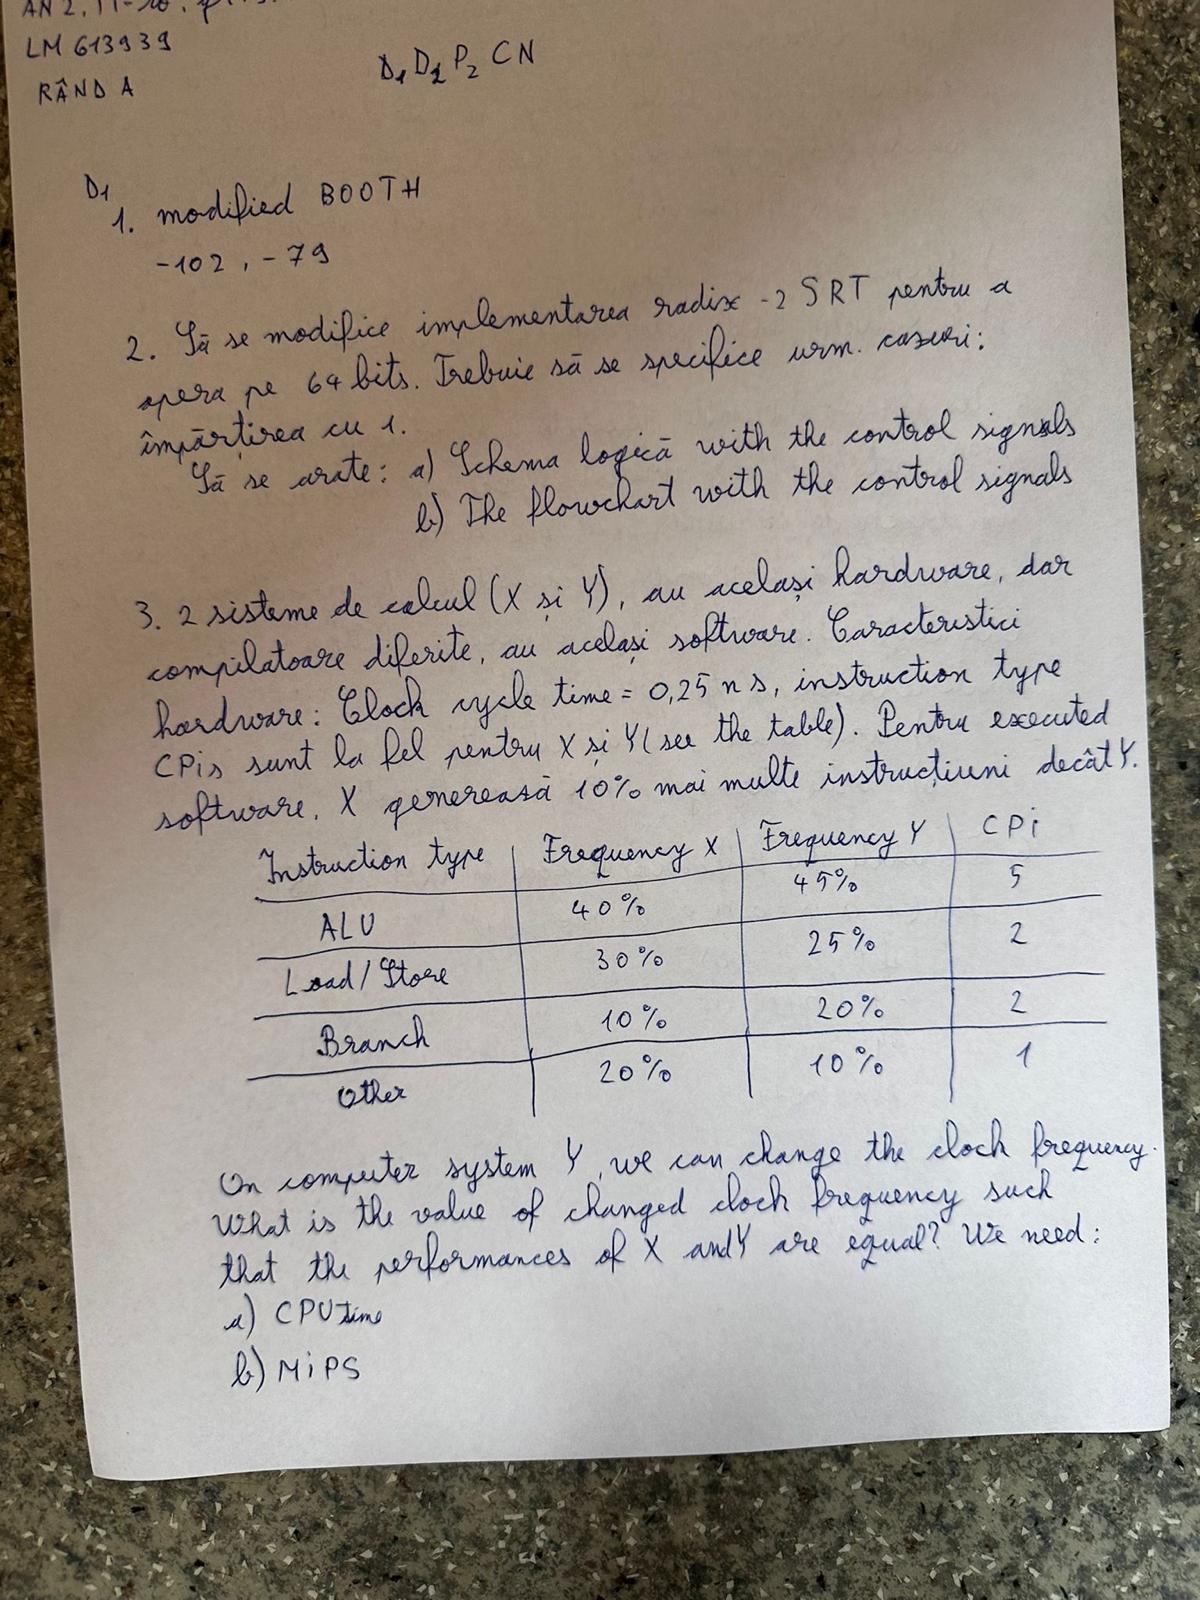 AN 2,
LM 613939
RÂND A
D1 D2 P2 CN
D1
1. modified BOOTH
-102, -79
2. Să se modifice implementarea radix -2 SRT pentru a
opera pe 64 bits. Trebuie să se specifice urm. cazuri:
împărțirea cu 1.
Să se arate: a) Schema logică with the control signals
b) The flowchart with the control signals
3. 2 sisteme de calcul (X și Y), au același hardware, dar
compilatoare diferite, au același software. Caracteristici
hardware: Clock cycle time = 0,25 ns, instruction type
CPis sunt la fel pentru X și Y (see the table). Pentru executed
software, X generează 10% mai multe instrucțiuni decât Y.
Instruction type Frequency X Frequency Y CPi
ALU 40% 45% 5
Load/Store 30% 25% 2
Branch 10% 20% 2
Other 20% 10% 1
On computer system Y, we can change the clock frequency.
What is the value of changed clock frequency such
that the performances of X and Y are equal? We need:
a) CPU time
b) MiPS